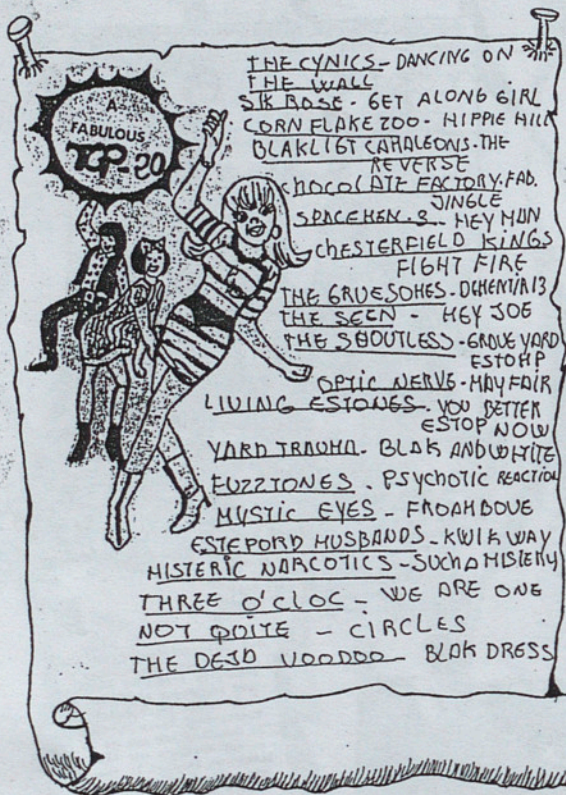 A
FABULOUS
TOP-20
THE CYNICS - DANCING ON
THE WALL
SIK ROSE - GET ALONG GIRL
CORN FLAKE ZOO - HIPPIE HILL
BLAKLIGT CAMALEONS - THE
REVERSE
CHOCOLATE FACTORY - FAB.
JINGLE
SPACEMEN.3 - HEY MAN
CHESTERFIELD KINGS
FIGHT FIRE
THE GRUESOMES - DEMENTIA 13
THE SEEN - HEY JOE
THE SHOUTLESS - GRAVE YARD
ESTOMP
OPTIC NERVE - MAYFAIR
LIVING ESTONES - YOU BETTER
ESTOP NOW
YARD TRAUMA - BLAK AND WHITE
FUZZTONES - PSYCHOTIC REACTION
MYSTIC EYES - FROAMBOVE
ESTEPORD HUSBANDS - KWIK WAY
HISTERIC NARCOTICS - SUCH A MISTERY
THREE O'CLOC - WE ARE ONE
NOT QUITE - CIRCLES
THE DEAD VOODOO - BLAK DRESS